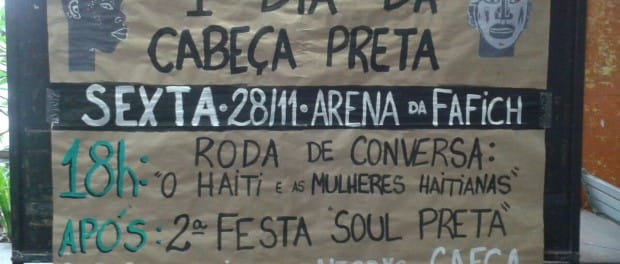 1º DIA DA
CABEÇA PRETA
SEXTA · 28/11 · ARENA DA FAFICH
18h: RODA DE CONVERSA:
"O HAITI E AS MULHERES HAITIANAS"
APÓS: 2ª FESTA "SOUL PRETA"